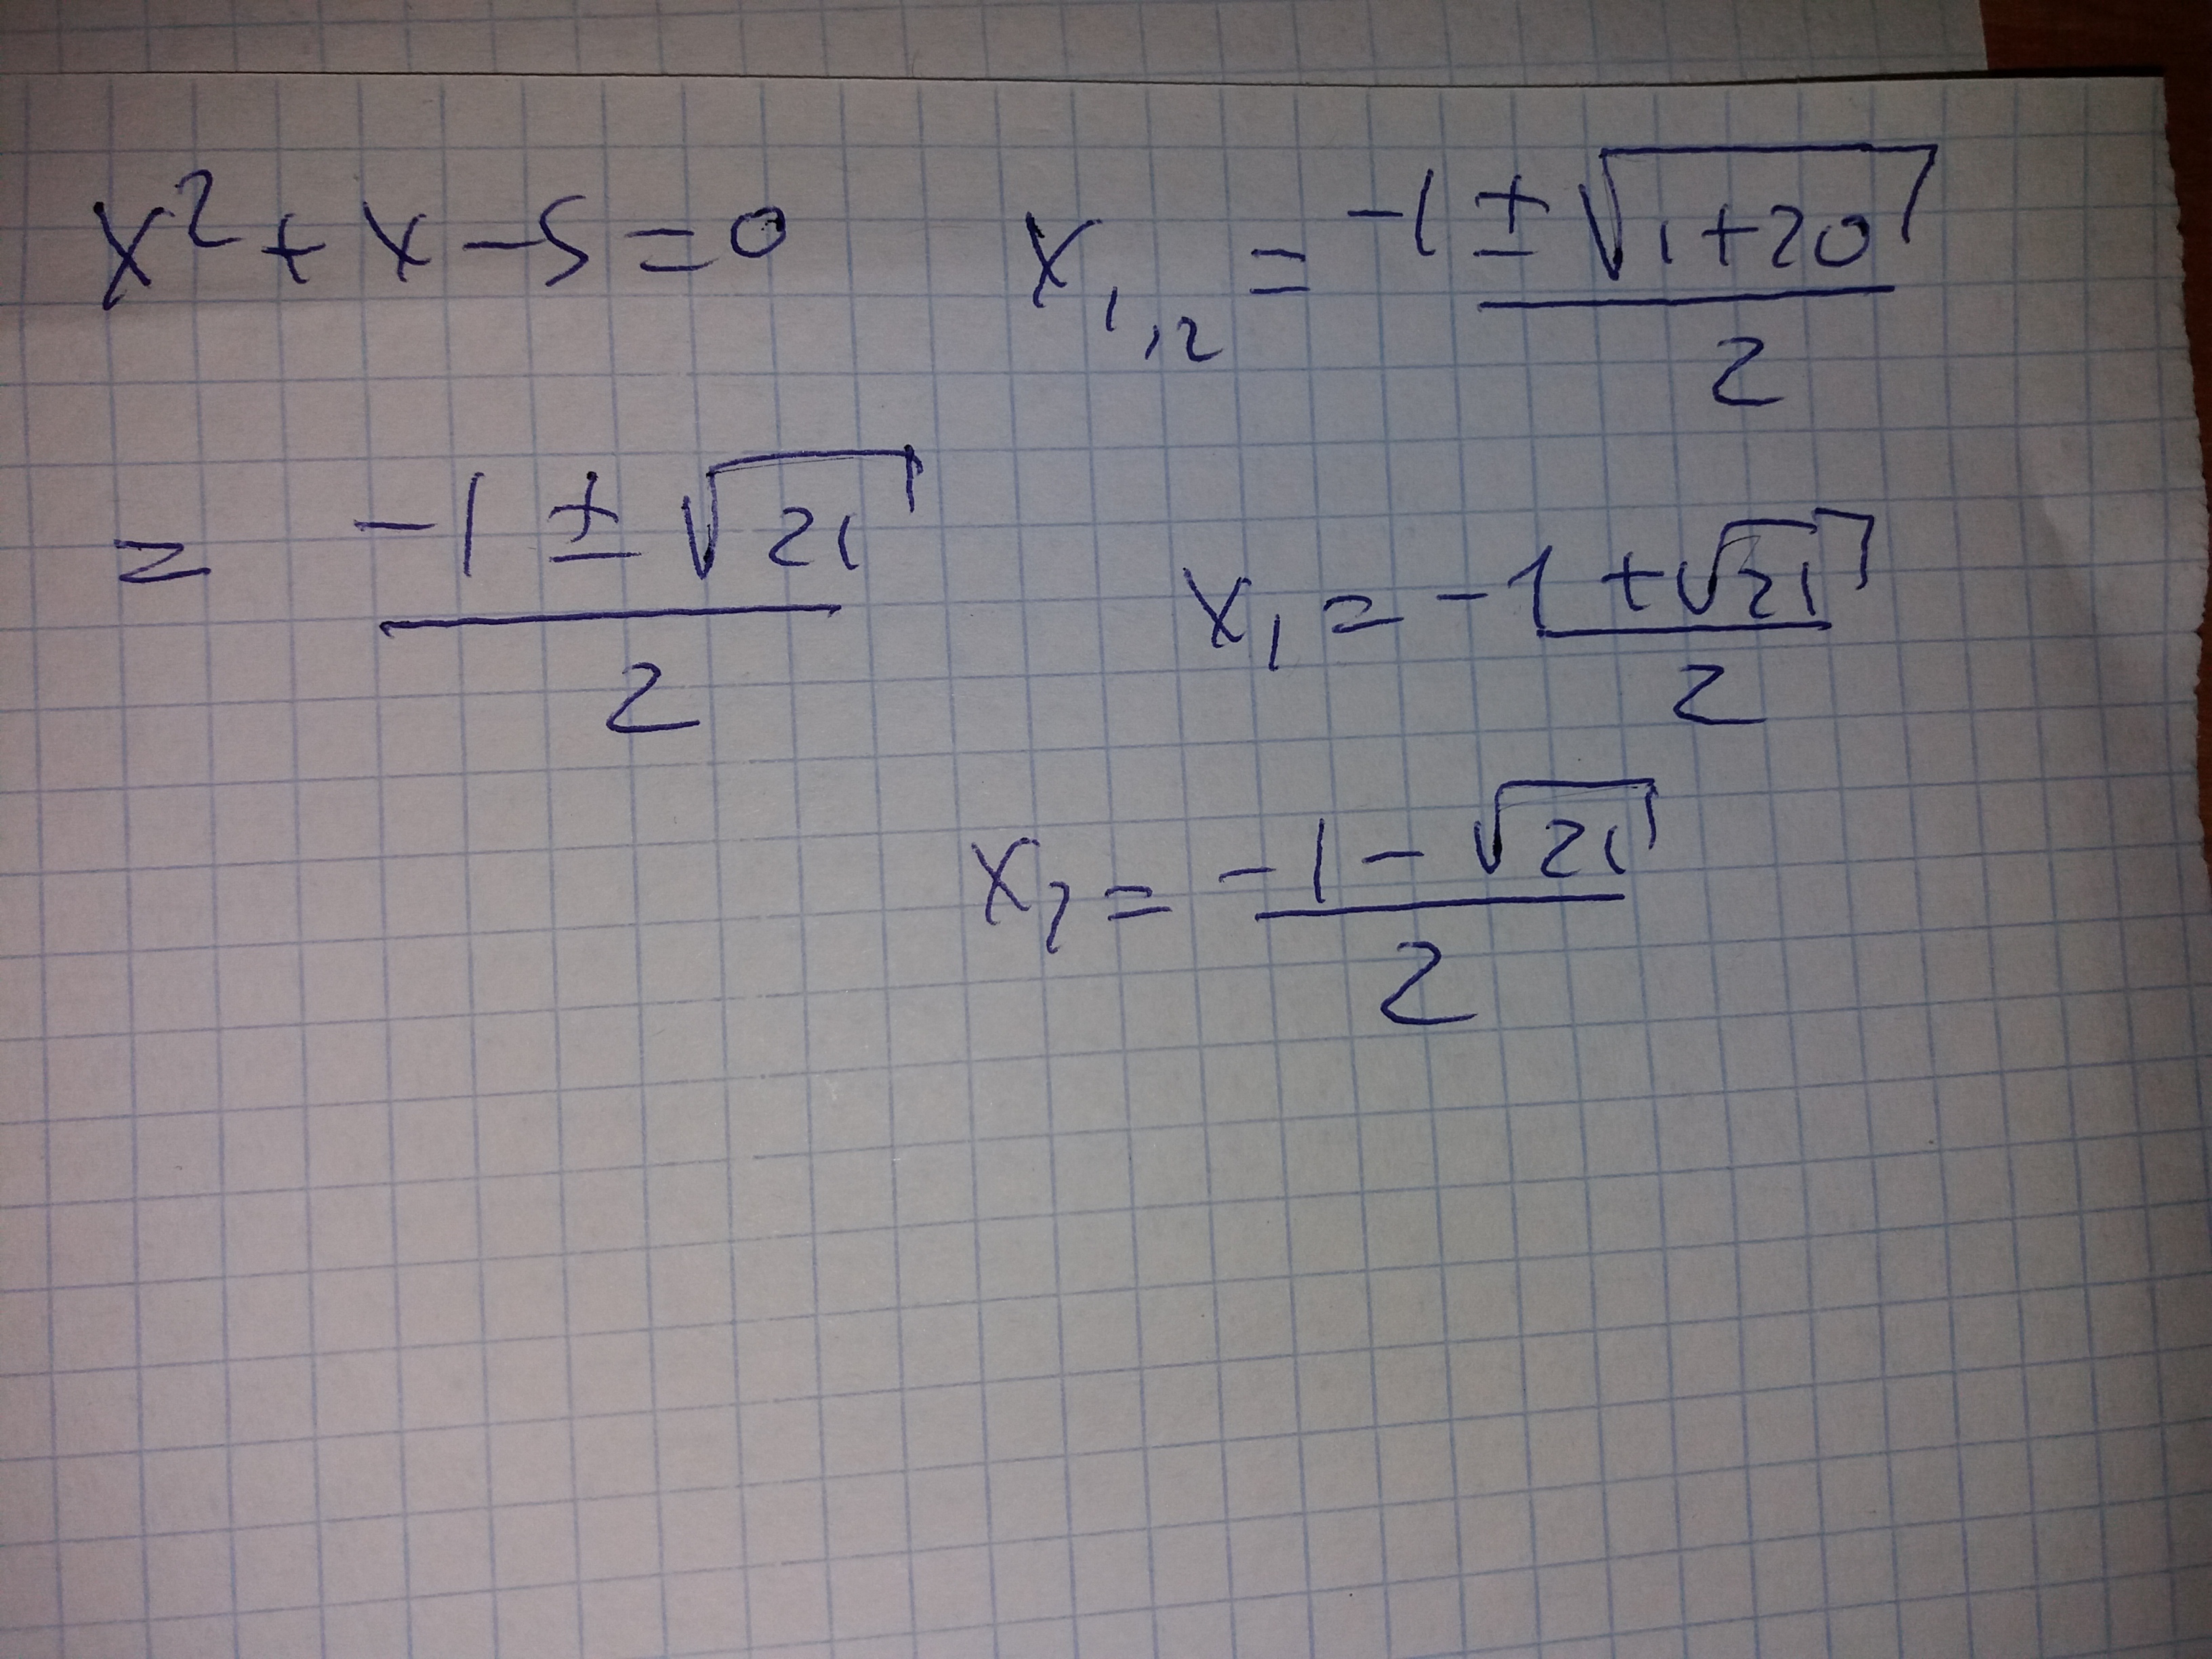 x² + x - 5 = 0
x₁,₂ = (-1 ± √(1+20)) / 2
= (-1 ± √21) / 2
x₁ = (-1 + √21) / 2
x₂ = (-1 - √21) / 2